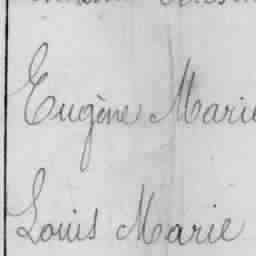 Eugène Marie
Louis Marie